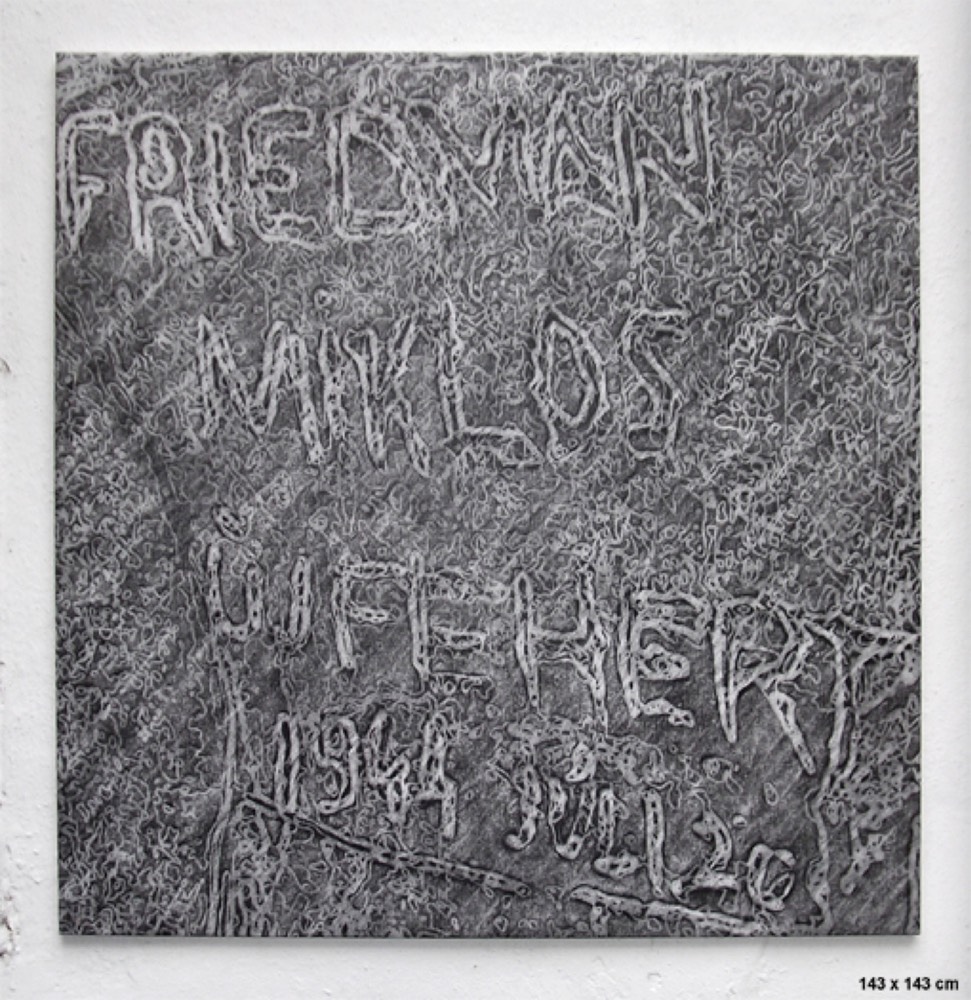 FRIEDMAN
MIKLOS
ÚJFEHERT
1944
143 x 143 cm